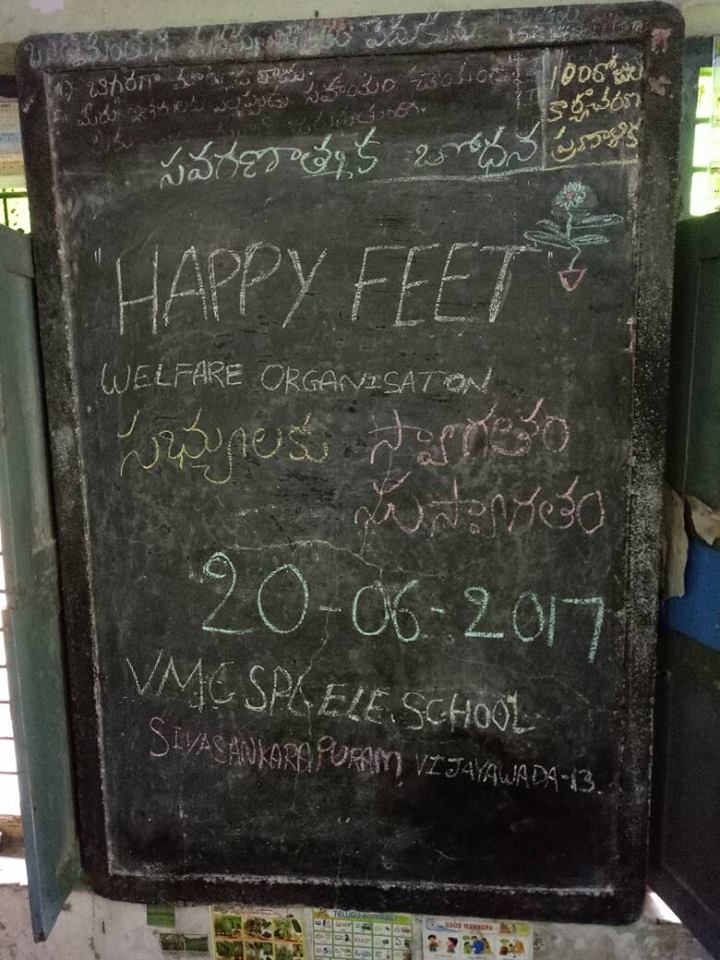 1) బిగ్గరగా
మీరు సహాయం చేయండి
100రోజుల
కార్యాచరణ
ప్రణాళిక
సవరణాత్మక బోధన
"HAPPY FEET"
WELFARE ORGANISATON
సభ్యులకు స్వాగతం
సుస్వాగతం
20-06-2017
VMC SPL ELE. SCHOOL
SIVASANKARAPURAM, VIJAYAWADA-13.
TELUGU
GOOD MANNERS